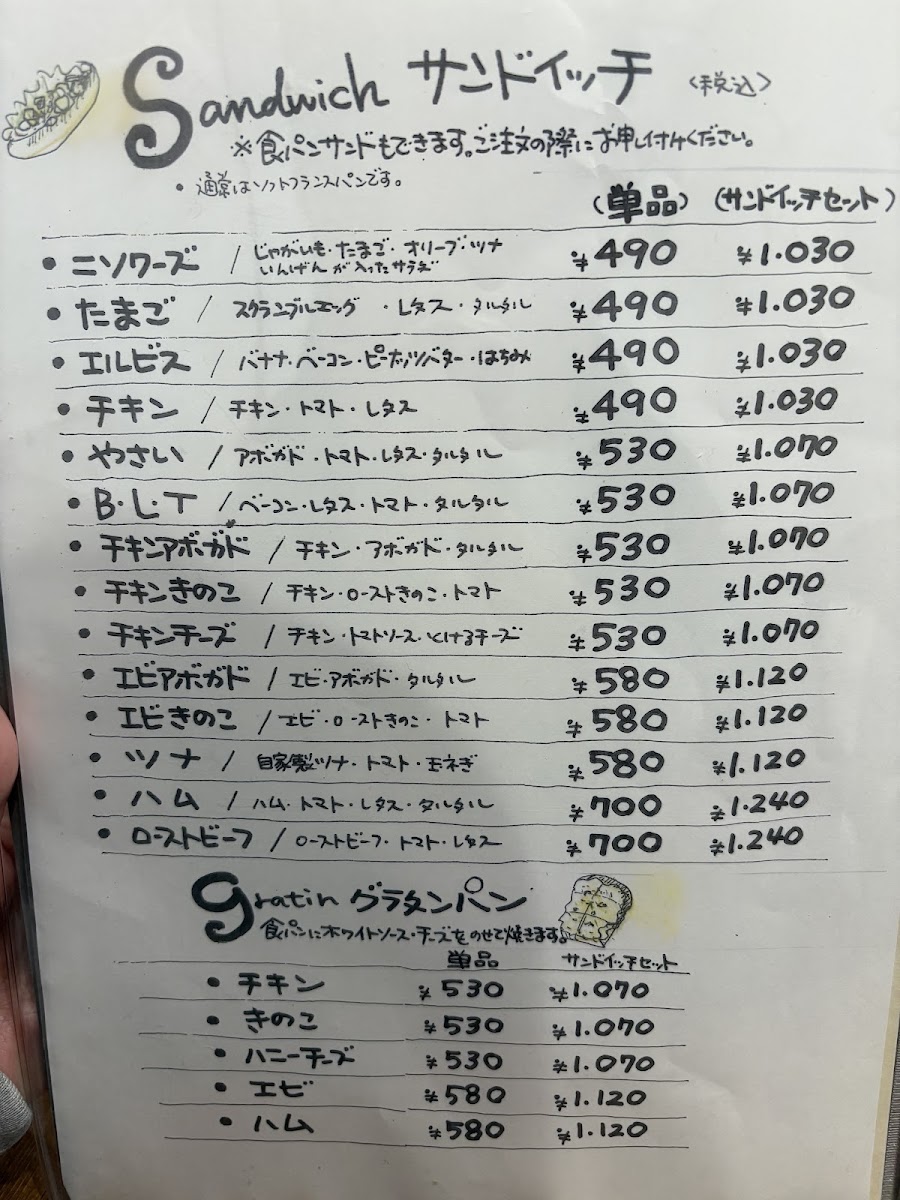 Sandwich サンドイッチ 〈税込〉
※食パンサンドもできます。ご注文の際にお申し付けください。
・通常はソフトフランスパンです。
(単品) (サンドイッチセット)
・ニソワーズ / じゃがいも・たまご・オリーブ・ツナ
いんげんが入ったサラダ ¥490 ¥1.030
・たまご / スクランブルエッグ ・レタス・タルタル ¥490 ¥1.030
・エルビス / バナナ・ベーコン・ピーナッツバター・はちみつ ¥490 ¥1.030
・チキン / チキン・トマト・レタス ¥490 ¥1.030
・やさい / アボガド・トマト・レタス・タルタル ¥530 ¥1.070
・B・L・T / ベーコン・レタス・トマト・タルタル ¥530 ¥1.070
・チキンアボガド / チキン・アボガド・タルタル ¥530 ¥1.070
・チキンきのこ / チキン・ローストきのこ・トマト ¥530 ¥1.070
・チキンチーズ / チキン・トマトソース・とけるチーズ ¥530 ¥1.070
・エビアボガド / エビ・アボガド・タルタル ¥580 ¥1.120
・エビきのこ / エビ・ローストきのこ・トマト ¥580 ¥1.120
・ツナ / 自家製ツナ・トマト・玉ネギ ¥580 ¥1.120
・ハム / ハム・トマト・レタス・タルタル ¥700 ¥1.240
・ローストビーフ / ローストビーフ・トマト・レタス ¥700 ¥1.240
gratin グラタンパン
食パンにホワイトソース・チーズをのせて焼きます。
単品 サンドイッチセット
・チキン ¥530 ¥1.070
・きのこ ¥530 ¥1.070
・ハニーチーズ ¥530 ¥1.070
・エビ ¥580 ¥1.120
・ハム ¥580 ¥1.120